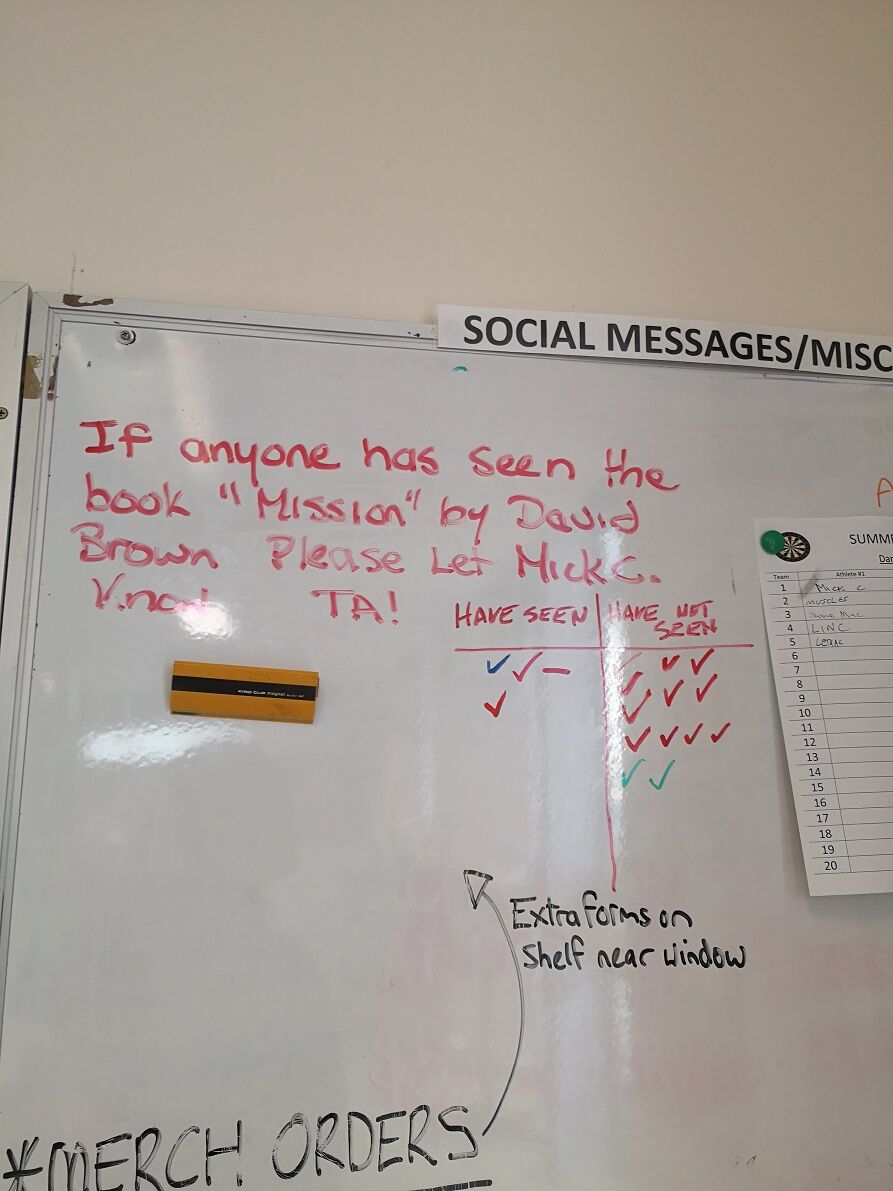 SOCIAL MESSAGES/MISC
If anyone has seen the
book "Mission" by David
Brown Please Let Mick C.
Know TA!
HAVE SEEN
HAVE NOT
SEEN
KING CLIP magnet
SUMME
Dar
Team Athlete #1
1 Mick C
2 MUSCLES
3
4 LINC
5
6
7
8
9
10
11
12
13
14
15
16
17
18
19
20
A
Extra forms on
Shelf near window
*MERCH ORDERS